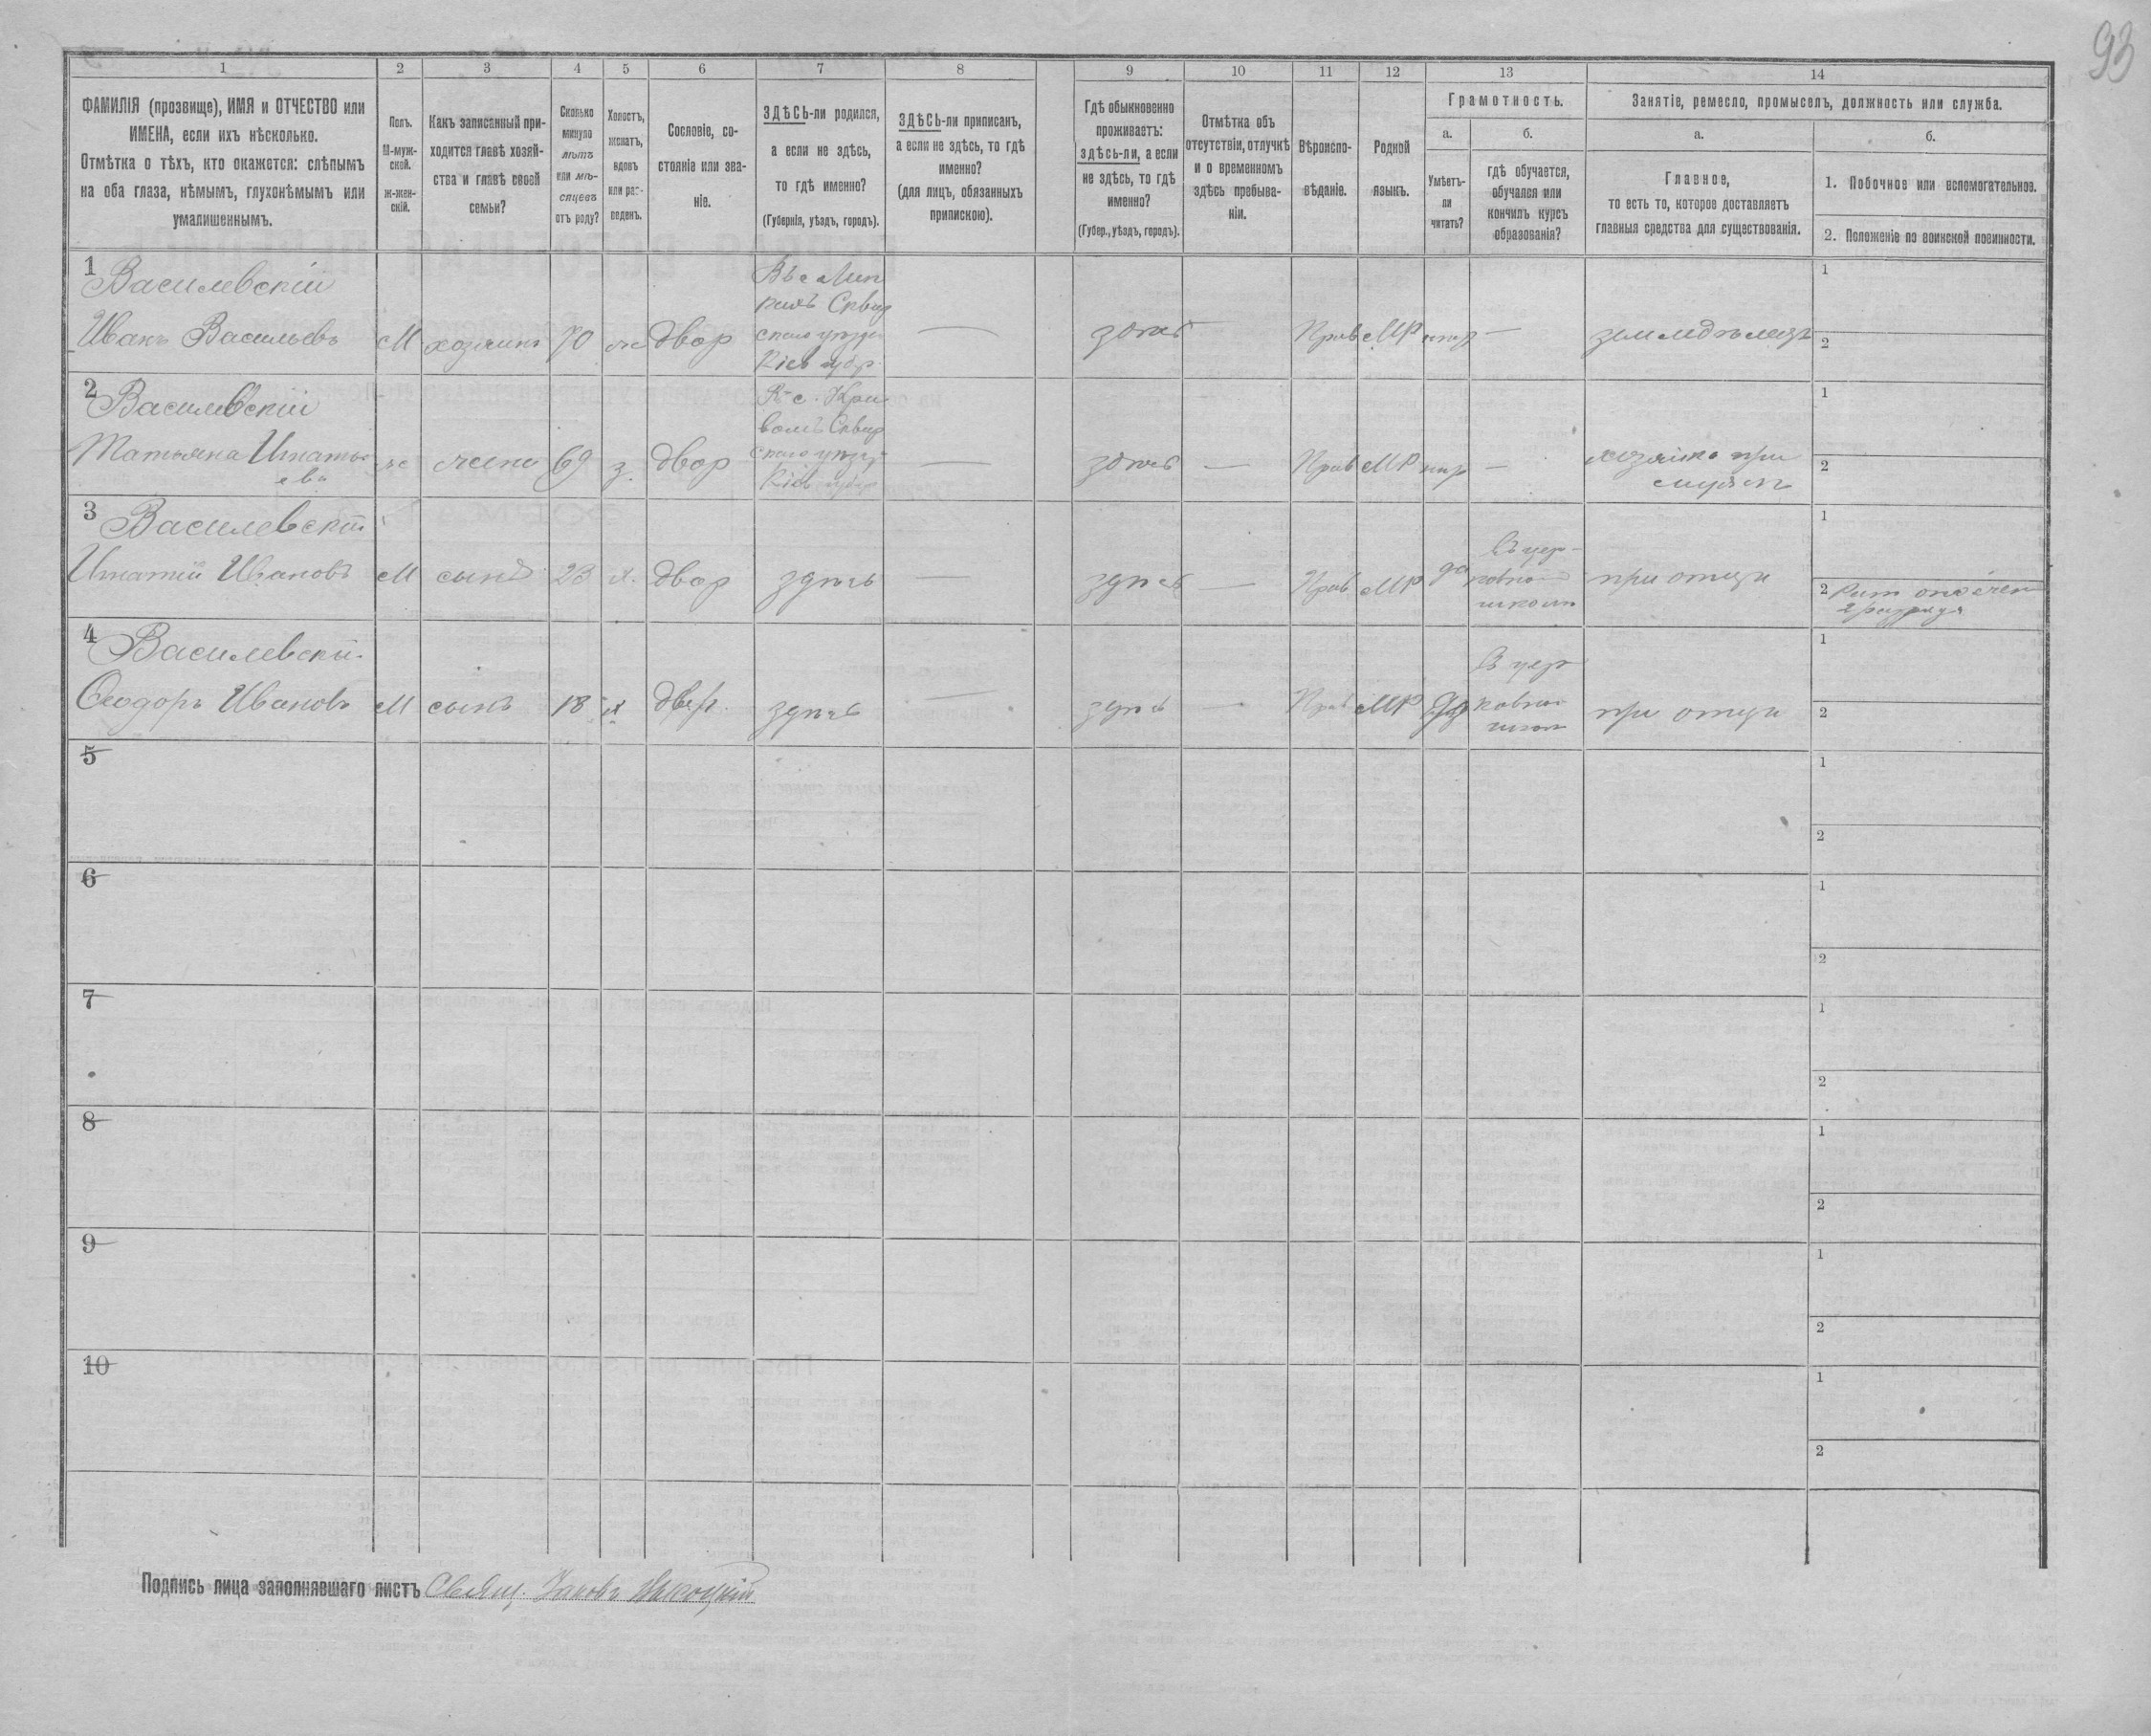 93
1 2 3 4 5 6 7 8 9 10 11 12 13 14
ФАМИЛІЯ (прозвище), ИМЯ и ОТЧЕСТВО или
ИМЕНА, если ихъ нѣсколько.
Отмѣтка о тѣхъ, кто окажется: слѣпымъ
на оба глаза, нѣмымъ, глухонѣмымъ или
умалишеннымъ.
Полъ.
М-муж-
ской.
ж-жен-
скій.
Какъ записанный при-
ходится главѣ хозяй-
ства и главѣ своей
семьи?
Сколько
минуло
лѣтъ
или мѣ-
сяцевъ
отъ роду?
Холостъ,
женатъ,
вдовъ
или раз-
веденъ.
Сословіе, со-
стояніе или зва-
ніе.
ЗДѢСЬ-ли родился,
а если не здѣсь,
то гдѣ именно?
(Губернія, уѣздъ, городъ).
ЗДѢСЬ-ли приписанъ,
а если не здѣсь, то гдѣ
именно?
(для лицъ, обязанныхъ
припискою).
Гдѣ обыкновенно
проживаетъ:
здѣсь-ли, а если
не здѣсь, то гдѣ
именно?
(Губер., уѣздъ, городъ).
Отмѣтка объ
отсутствіи, отлучкѣ
и о временномъ
здѣсь пребыва-
ніи.
Вѣроиспо-
вѣданіе.
Родной
языкъ.
Грамотность.
а.
Умѣетъ-
ли
читать?
б.
гдѣ обучается,
обучался или
кончилъ курсъ
образованія?
Занятіе, ремесло, промыселъ, должность или служба.
а.
Главное,
то есть то, которое доставляетъ
главныя средства для существованія.
б.
1. Побочное или вспомогательное.
2. Положеніе по воинской повинности.
1
Василевскій
Иванъ Васильевъ
М хозяинъ 70 ж двор
Въ с
Сквир
Кіев губр.
— здѣсь — Прав МР —
земледѣлецъ
1
2
2
Василевскій
Татьяна Игнать
ева
ж жена 69 з. двор
с.
Сквир
Кіев губр
— здѣсь — Прав МР —
хозяйка при
мужѣ
1
2
3
Василевскій
Игнатій Ивановъ
М сынъ 23 х. двор здѣсь — здѣсь — Прав МР да
Въ цер-
ковно
школѣ
при отцѣ
1
2
2 разряда
4
Василевскій
Ѳеодоръ Ивановъ
М сынъ 18 х двор. здѣсь — здѣсь — Прав МР да
В цер
ковно
школ
при отцѣ
1
2
5
1
2
6
1
2
7
1
2
8
1
2
9
1
2
10
1
2
Подпись лица заполнявшаго листъ Свящ. Іаковъ